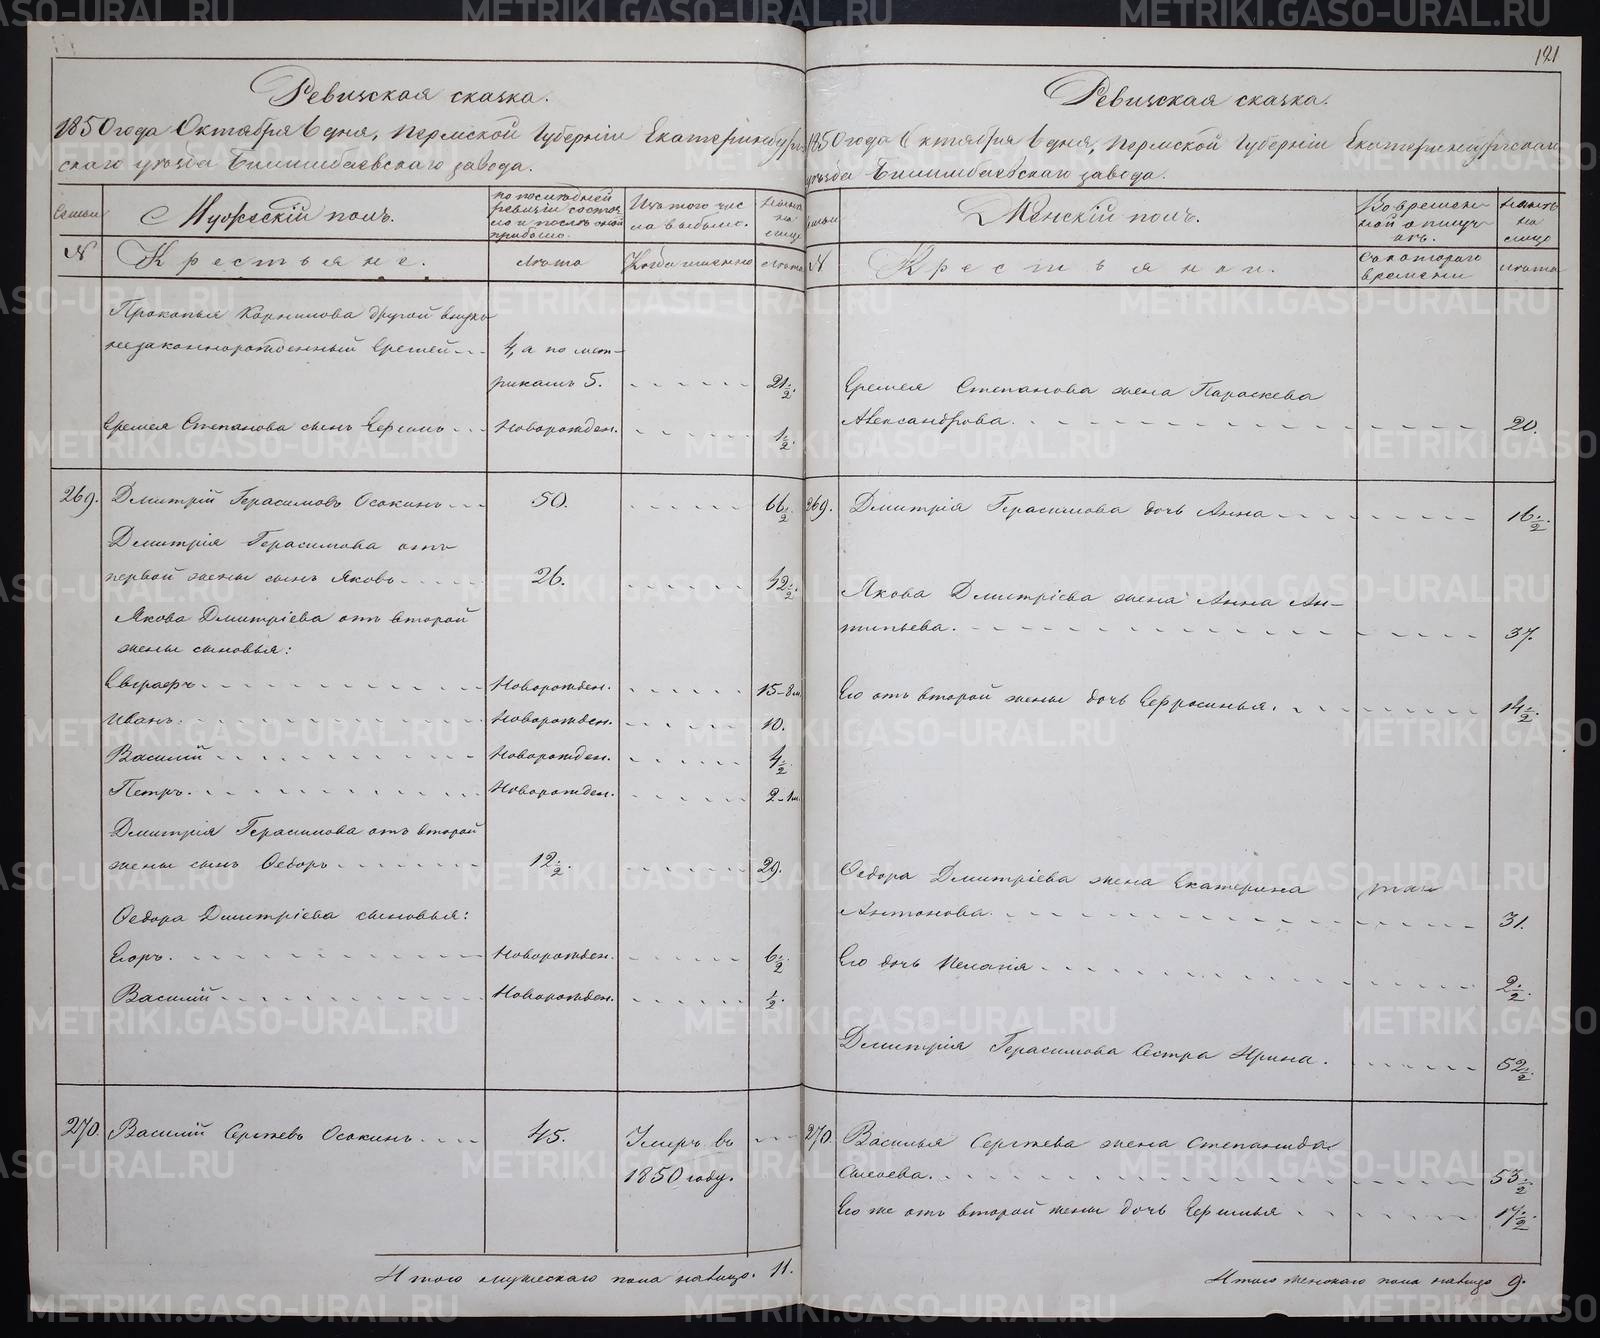 Ревизская сказка.
1850 года Октября 6 дня, Пермской Губерніи Екатеринбург-
скаго уѣзда Билимбаевскаго завода.
Семьи
Мужескій полъ.
По послѣдней ревизіи состояло и послѣ оной прибыло.
Изъ того числа выбыло.
Нынѣ на лицо
№
Крестьяне.
Лѣта
Когда именно
Лѣта
Прокопья Корнилова другой внукъ
незаконнорожденный Еремей 4, а по мет-
рикамъ 5. 21 1/2.
Еремея Степанова сынъ Ефимъ Новорожден. 1/2
269. Дмитрій Герасимовъ Осокинъ 50. 66 1/2
Дмитрія Герасимова отъ
первой жены сынъ Яковъ 26. 42 1/2
Якова Дмитріева отъ второй
жены сыновья:
Евграфъ Новорожден. 15-8 м.
Иванъ Новорожден. 10.
Василій Новорожден. 4 1/2
Петръ Новорожден. 2-1 м.
Дмитрія Герасимова отъ второй
жены сынъ Ѳедоръ 12 1/2. 29.
Ѳедора Дмитріева сыновья:
Егоръ Новорожден. 6 1/2
Василій Новорожден. 1/2.
270. Василій Сергѣевъ Осокинъ 45. Умеръ въ
1850 году.
Итого мужескаго пола налицо. 11.
121
Ревизская сказка.
1850 года Октября 6 дня, Пермской Губерніи Екатеринбургскаго
уѣзда Билимбаевскаго завода.
Семьи
Женскій полъ.
Во временной отлучкѣ.
Нынѣ на лицо
№
Крестьянки.
Съ котораго времени
Лѣта
Еремея Степанова жена Параскева
Александрова. 20.
269. Дмитрія Герасимова дочь Анна 16 1/2.
Якова Дмитріева жена Анна Ан-
типьева. 37.
Его отъ второй жены дочь Ефросинья. 14 1/2.
Ѳедора Дмитріева жена Екатерина
Антонова. 31.
Его дочь Пелагія 2 1/2.
Дмитрія Герасимова Сестра Ирина. 52 1/2.
270. Василья Сергѣева жена Степанида
Сысоева. 53 1/2
Его же отъ второй жены дочь Ефимья 17 1/2.
Итого женскаго пола налицо 9.
METRIKI.GASO-URAL.RU